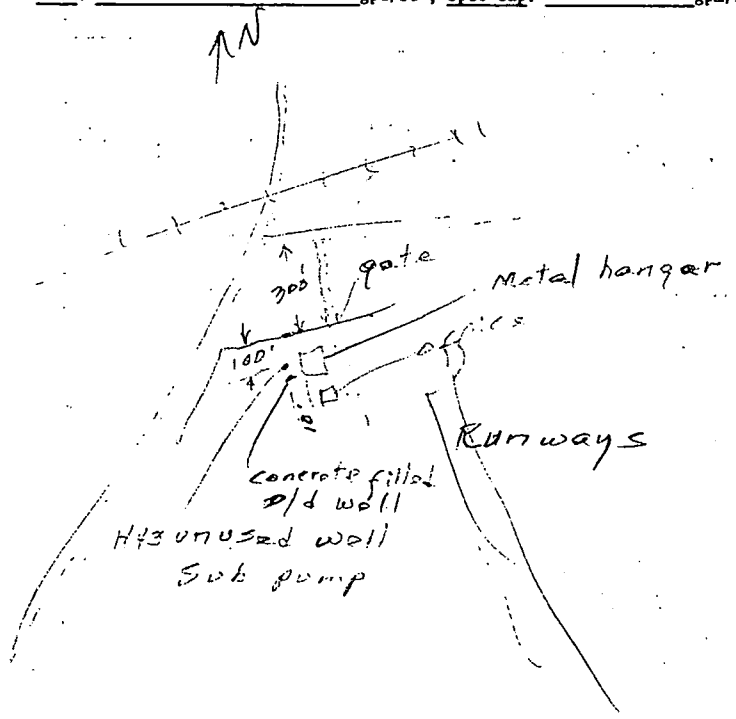 N
300'
gate
Metal hangar
100'
office
10'
Runways
concrete filled
old well
H43 unused well
Sub pump